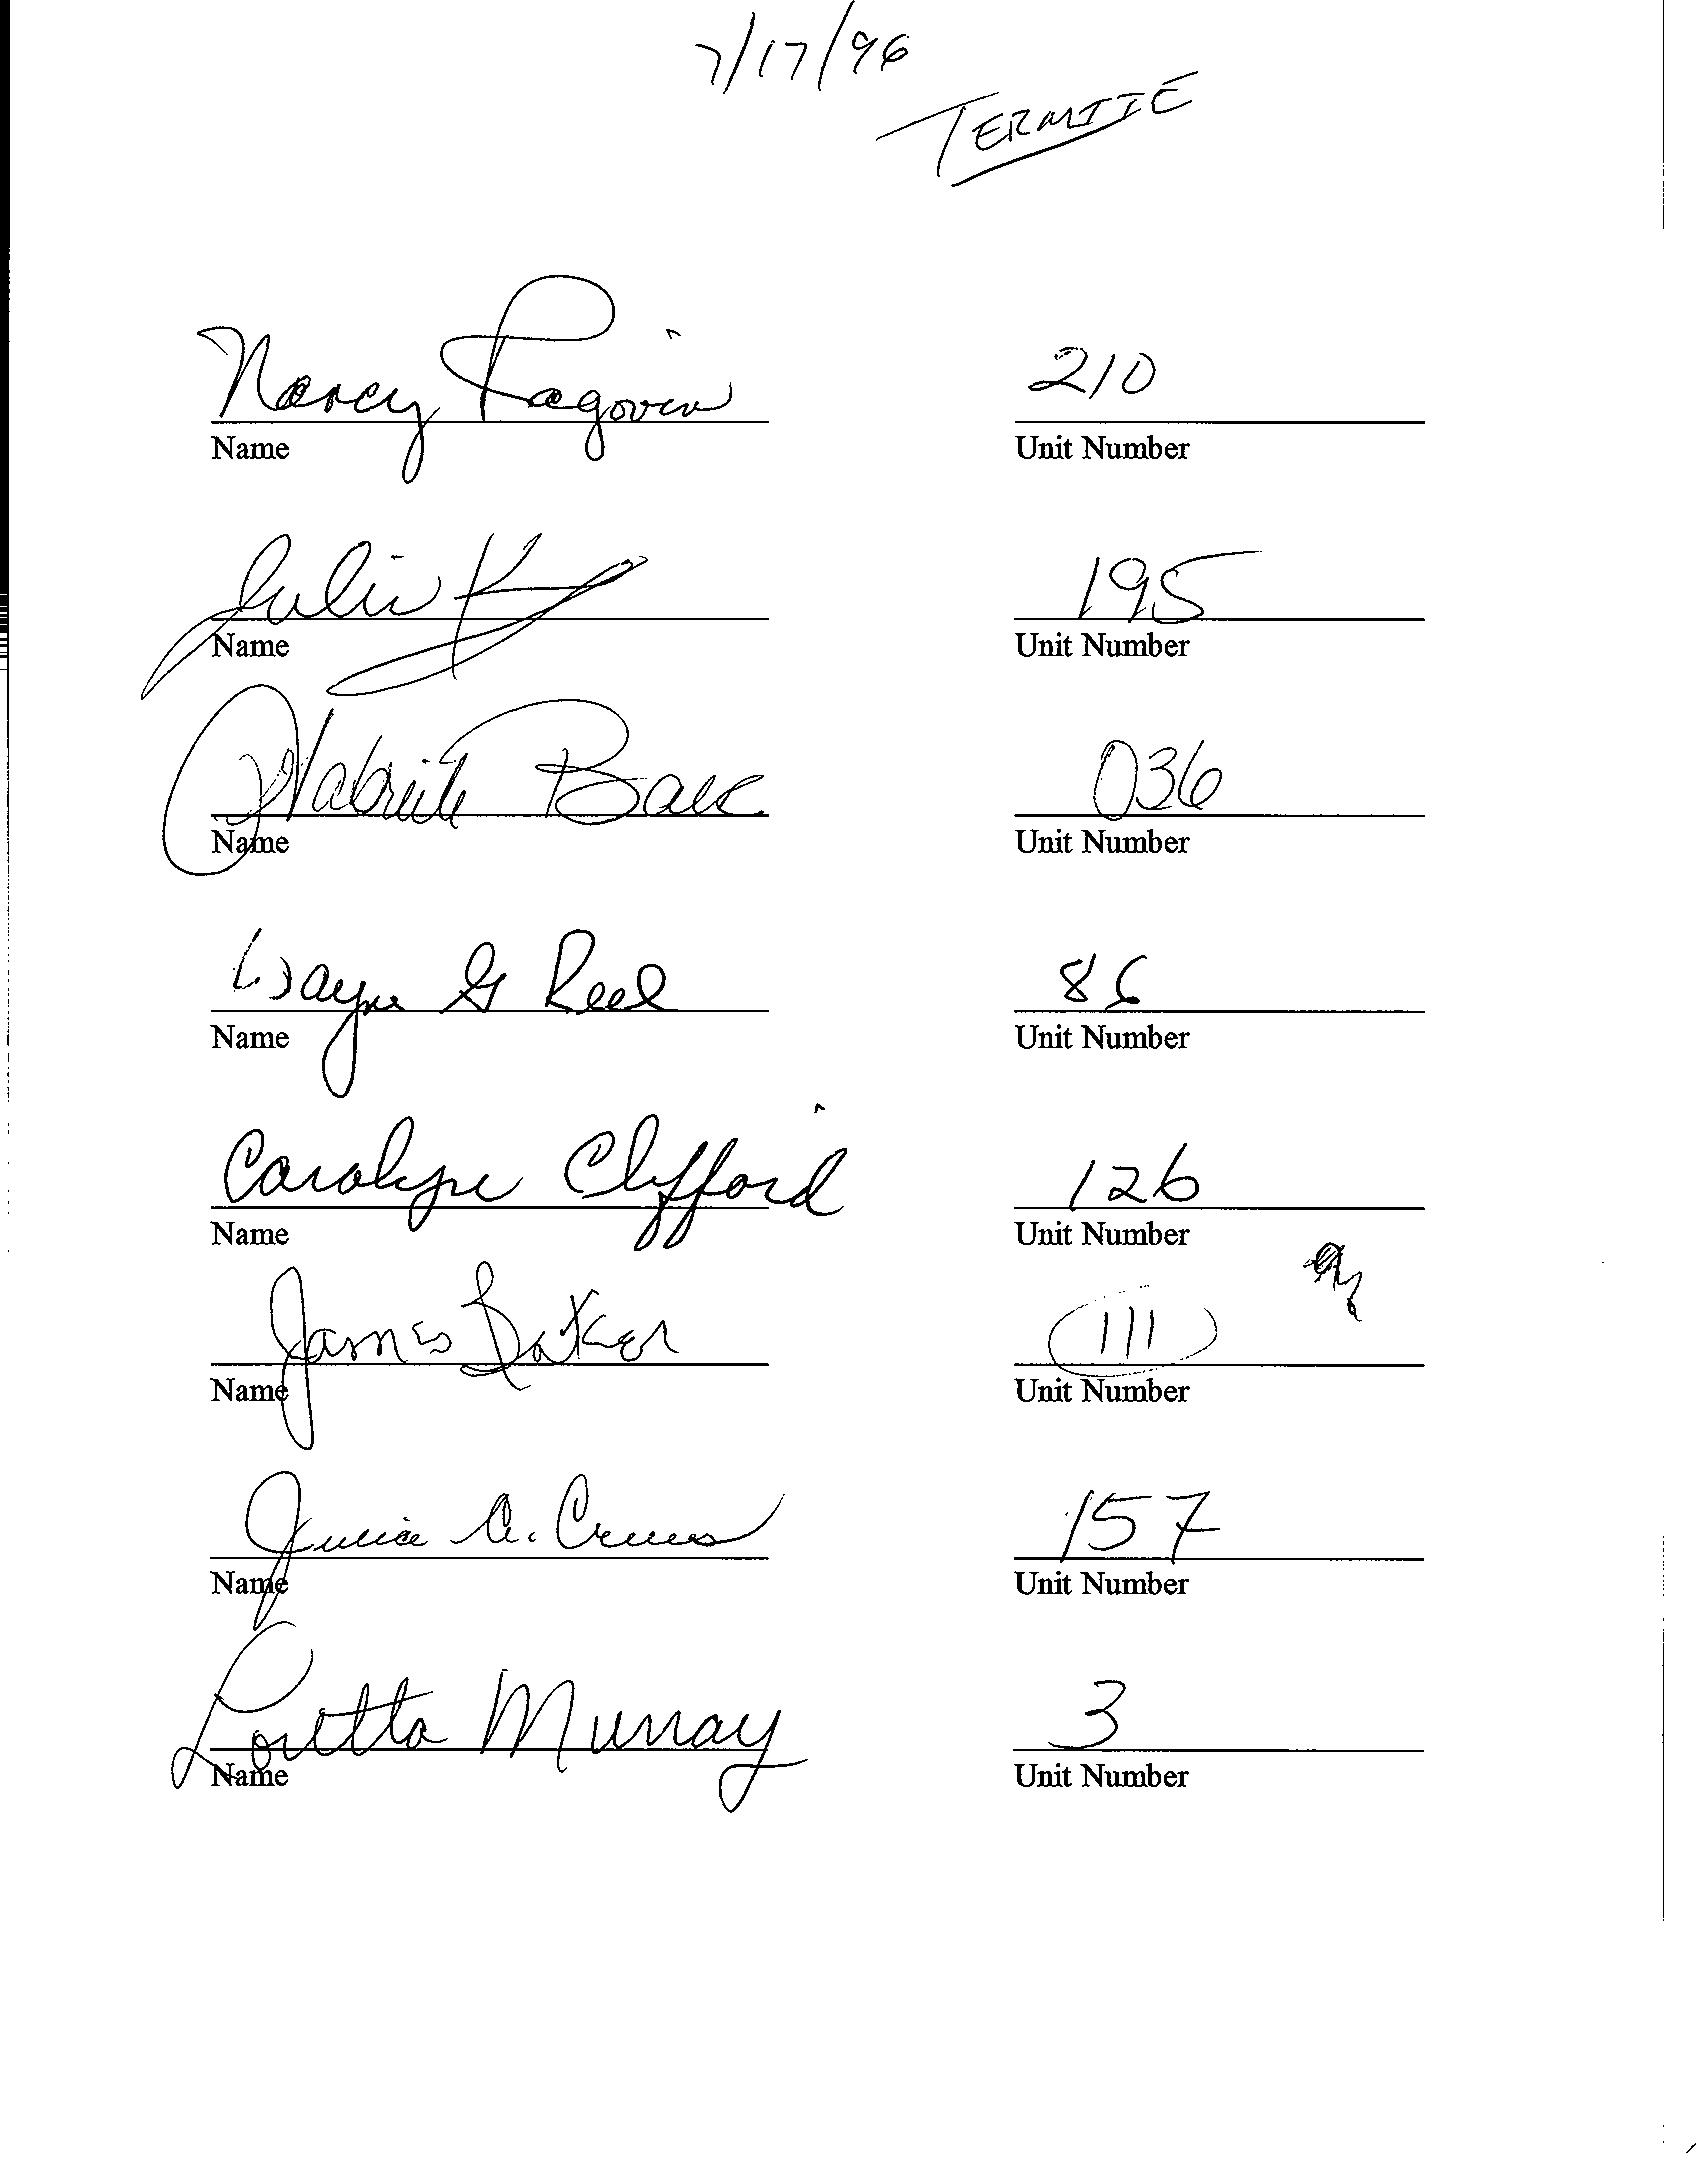 7/17/96
TERMITE
Nancy Ragovin 210
Name Unit Number
Julie 195
Name Unit Number
036
Name Unit Number
Wayne G Reel 86
Name Unit Number
Carolyn Clifford 126
Name Unit Number
James Baker 111
Name Unit Number
A. 157
Name Unit Number
Loretta Murray 3
Name Unit Number